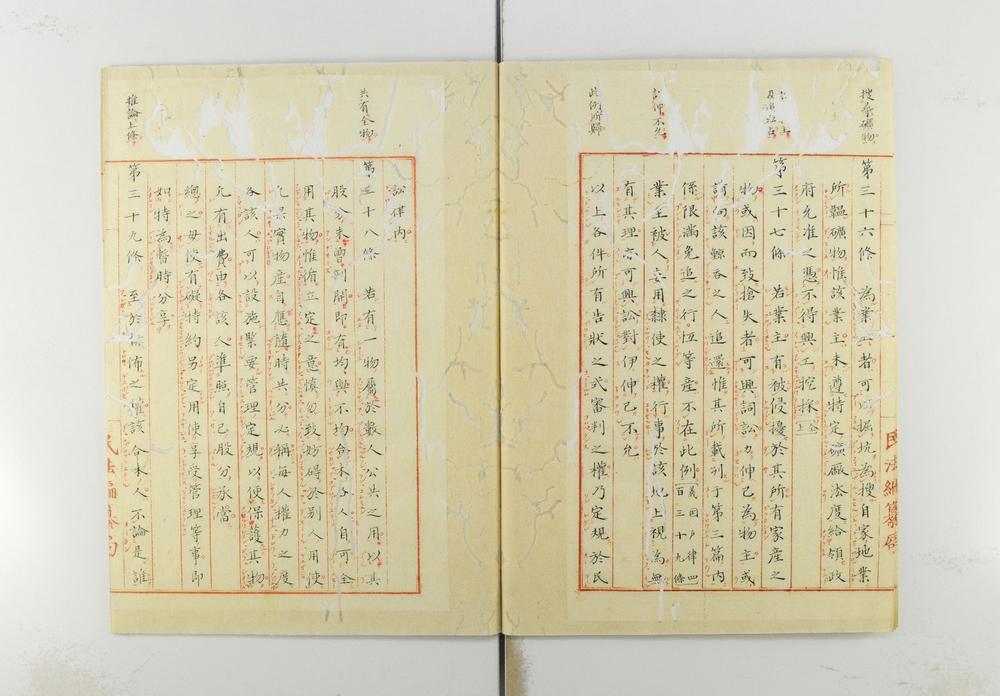 搜尋礦物
第三十六條 為業主者可以掘坑為搜自家地業
所韞礦物惟該業主未遵特定礦廠法度給領政
府允准之憑不得興工挖採仝上
第三十七條 若業主有被侵擾於其所有家產之
物或因而致搶失者可興詞訟力伸己為物主或
請向該鯨吞之人追還惟其所載列于第三篇內
係限滿免追之行恆等產不在此例義囙戶律四百三十九條
訟伸不允
業主被人妄用隸使之權行事於該地上視為無
有其理亦可興訟對伊伸己不允
此例所歸
以上各件所有告狀之式審判之權乃定規於民
民法編纂
訟律內
共有仝物
第三十八條 若有一物屬於數人公共之用以其
股分未曾剖開即有均與不均合本各人自可仝
用其物惟循立定之意慎勿致妙碍於別人用使
凡菓實物產自應隨時共分必稱每人權力之度
各該人可以設施緊要管理定規以便保護其物
允有出費由各該人準照自己股分承當
總之毋使有礙特約另定用使享受管理等事即
如特為暫時分享
推論上條
第三十九條 至於佈之權該合本人不論是誰
民法編纂局